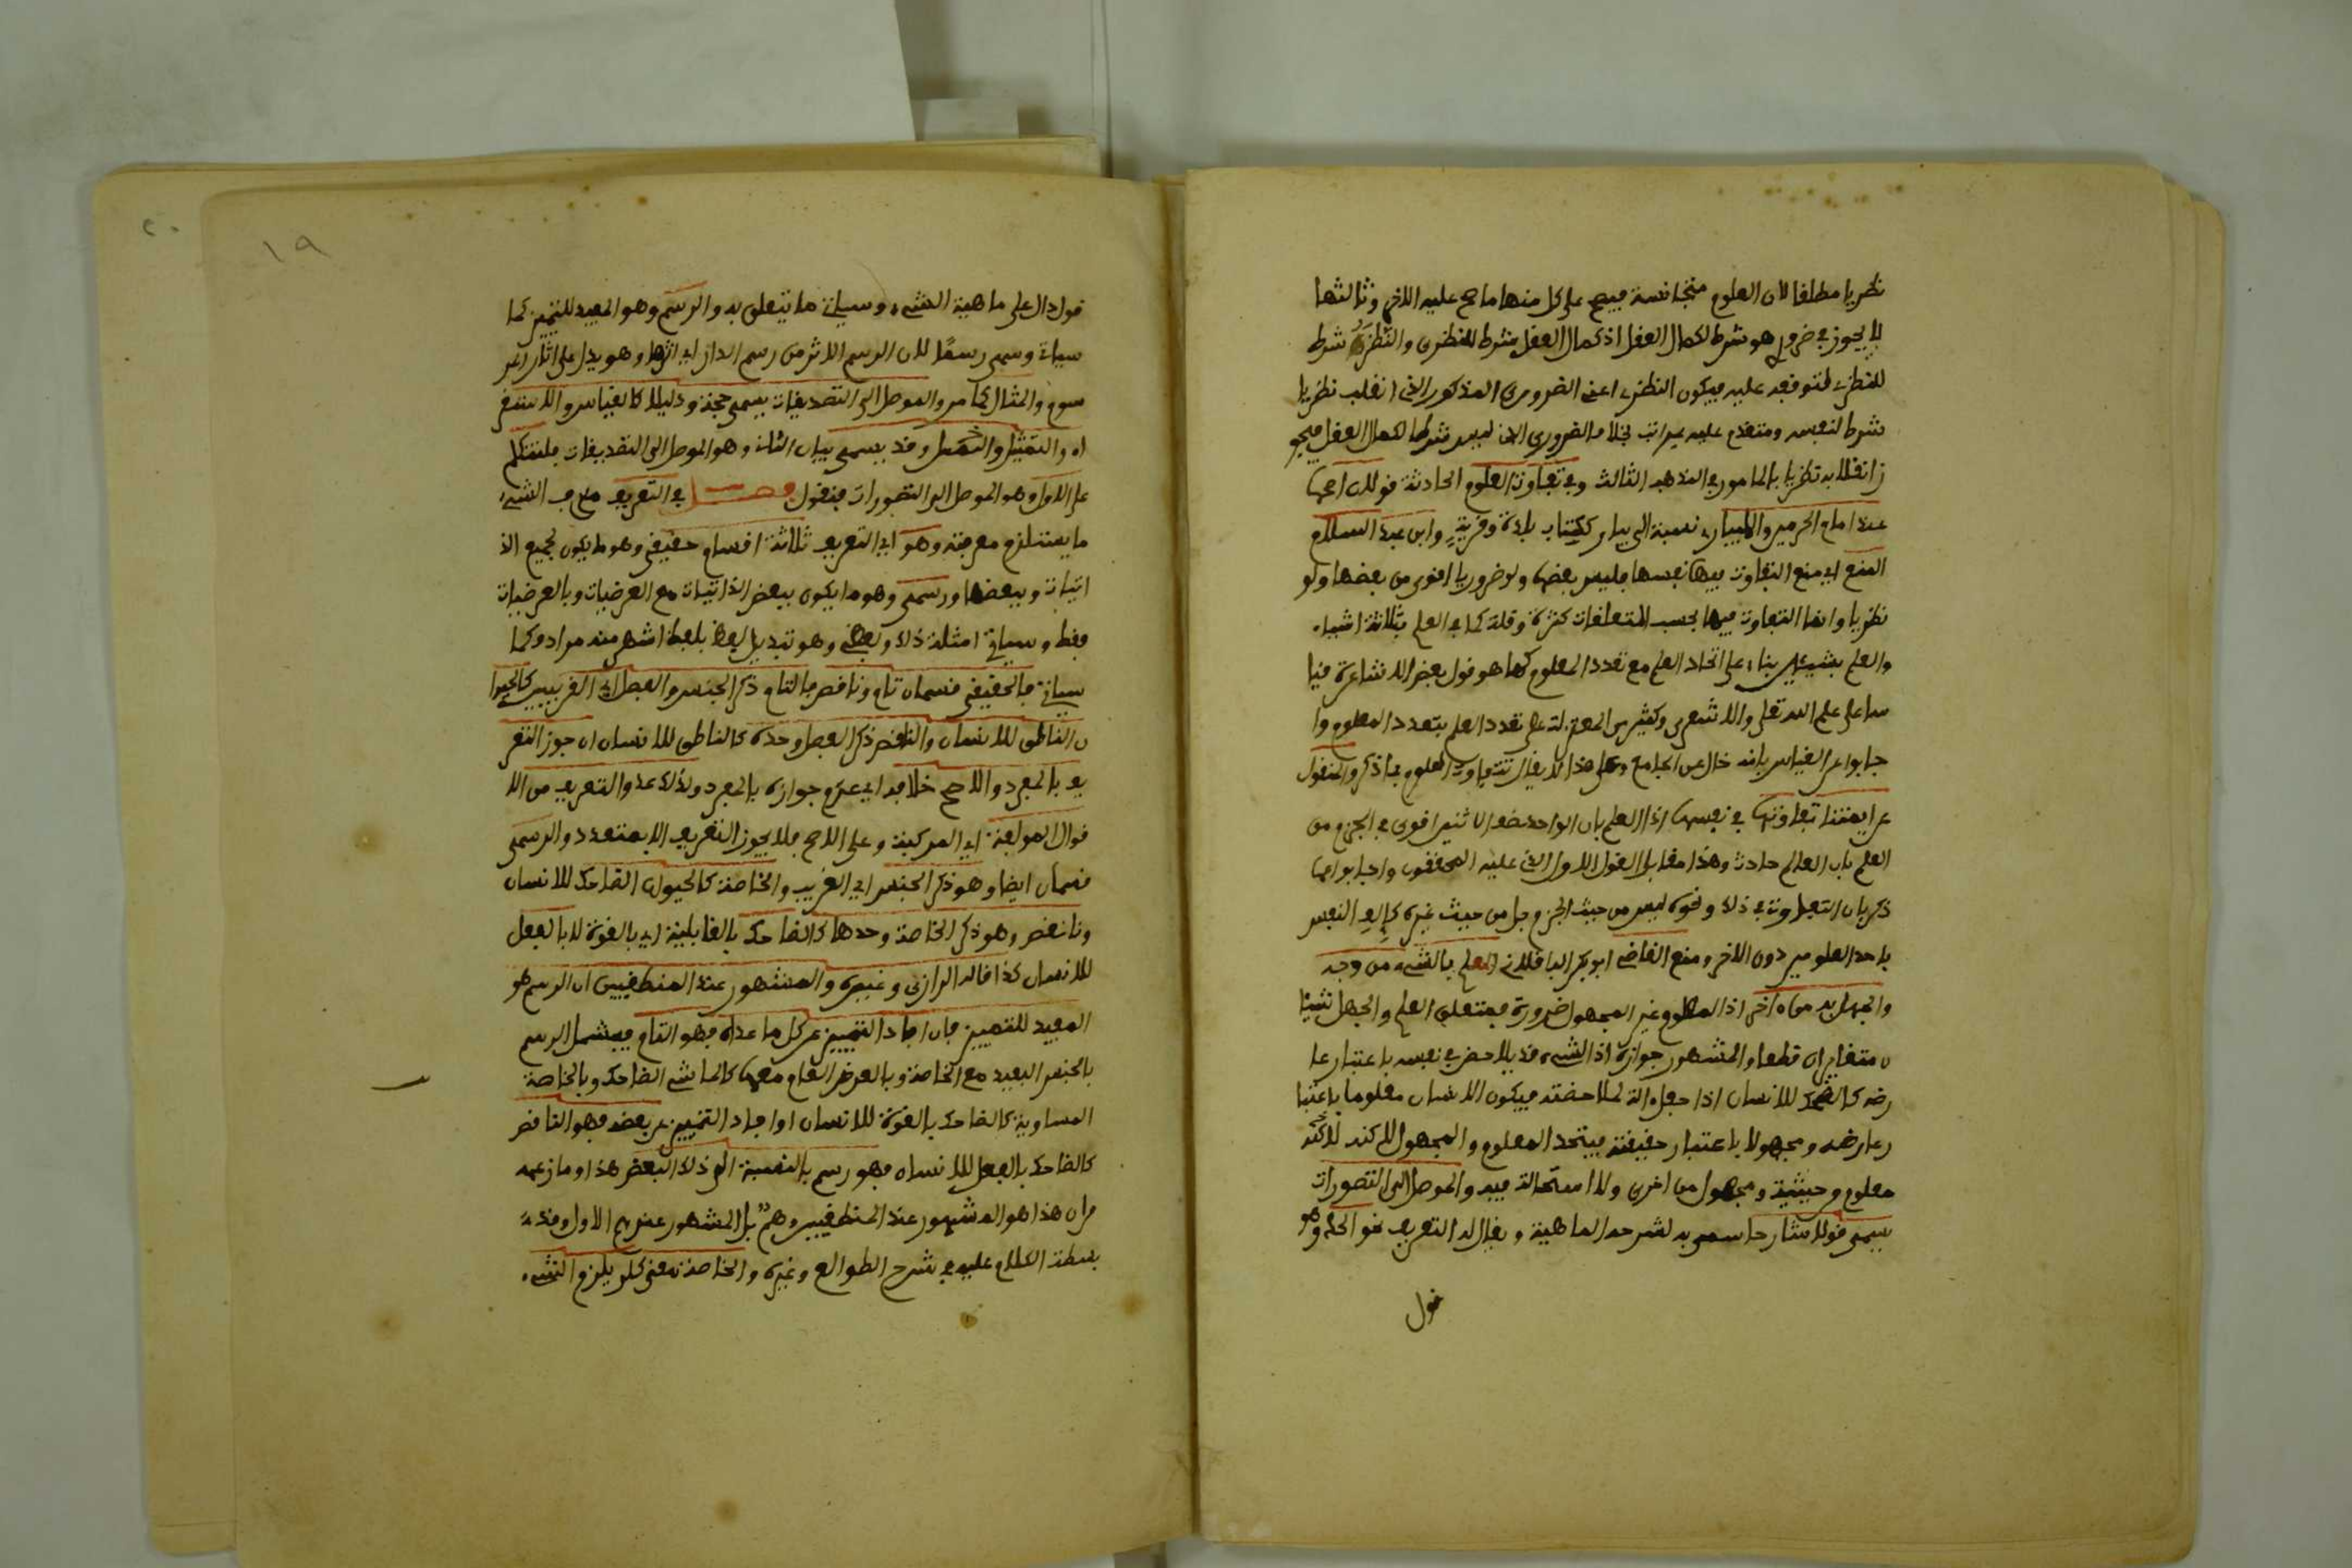 نظريا مطلقا لان العلوم متجانسة فيصح على كل منها ما صح عليه الاخر وثالثها
لا يجوز في ضروري هو شرط لكمال العقل اذ كمال العقل شرط للنظرى والنظرى شرط
للنظرى لتوقفه عليه فيكون النظرى اعنى الضرورى المذكور الذى انقلب نظريا
شرطا لنفسه ومتقدم عليه بمراتب بخلاف الضرورى الذى ليس شرطا لكمال العقل فيجو
ز انقلابه نظريا لما مر في المذهب الثالث وفي تفاوت العلوم الحادثة قولان اصحها
عند امام الحرمين والابيارى نسبة الى بيار ككتاب بلدة وقرية وابن عبد السلام
المنع اى منع التفاوت فيها نفسها فليس بعضها ولو ضروريا اقوى من بعضها ولو
نظريا وانما التفاوت فيها بحسب المتعلقات كثرة وقلة كما في العلم بثلاثة اشياء
والعلم بشيئين بناء على اتحاد العلم مع تعدد المعلوم كما هو قول بعض الاشاعرة قيا
سا على علم الله تعلى والاشعرى وكثير من المعتزلة على تعدد العلم بتعدد المعلوم وا
جابوا عن القياس بانه خال عن الجامع وعلى هذا لا يقال تتفاوت العلوم بما ذكر والمنقول
عن ايمتنا تفاوتها في نفسها اذ العلم بان الواحد نصف الاثنين اقوى في الجزم من
العلم بان العالم حادث وهذا مقابل القول الاول الذى عليه المحققون واجابوا عما
ذكر بان التفاوت في ذلك ونحوه ليس من حيث الجزم بل من حيث غيره كإلف النفس
باحد العلومين دون الاخر ومنع القاضى ابو بكر الباقلانى العلم بالشىء من وجه
والجهل به من ءاخر اذ المعلوم غير المجهول ضرورة فمتعلق العلم والجهل شيئا
ن متغايران قطعا والمشهور جوازه اذ الشىء قد يلاحض في نفسه باعتبار عا
رضه كالضحك للانسان اذا جعل ءالة لملاحضته فيكون الانسان معلوما باعتبا
ر عارضه ومجهولا باعتبار حقيقته فيتحد المعلوم والمجهول لكنه
معلوم من حيثية ومجهول من اخرى ولا استحالة فيه والموصل الى التصورات
يسمى قولا شارحا سمى به لشرحه الماهية ويقال له التعريف نحو الحد وهو
قول
١٩
قول دال على ماهية الشىء وسياتى ما يتعلق به والرسم وهو المفيد للتمييز كما
سياتى وسمى رسمًا لان الرسم الاثر من رسم الدار اى اثرها وهو يدل على اثار المر
سوم والمثال كما مر والموصل الى التصديقات يسمى حجة ودليلا كالقياس والاستقر
اء والتمثيل وقد يسمى بيان الثانى وهو الموصل الى التصديقات فلنتكلم
على الاول وهو الموصل الى التصورات فنقول فصل في التعريف معرف الشىء
ما يستلزم معرفته وهو اى التعريف ثلاثة اقسام حقيقى وهو ما يكون بجميع الذ
اتيات وببعضها ورسمى وهو ما يكون ببعض الذاتيات مع العرضيات وبالعرضيات
فقط وسياتى امثلة ذلك ولفظى وهو تبديل لفظ بلفظ اشهر منه مرادف كما
سياتى فالحقيقى قسمان تام وناقص فالتام ذكر الجنس والفصل اى القريبين كالحيوا
ن الناطق للانسان والناقص ذكر الفصل وحده كالناطق للانسان ان جوز التعر
يف بالمفرد والاصح خلافه اى عدم جوازه بالمفرد ولذلك عدوا التعريف من الا
قوال المولفة اى المركبة وعلى الاصح فلا يجوز التعريف الا بمتعدد والرسمى
قسمان ايضا وهو ذكر الجنس اى القريب والخاصة كالحيوان الضاحك للانسان
وناقص وهو ذكر الخاصة وحدها كالضاحك بالقابلية اى بالقوة لا بالفعل
للانسان كذا قاله الرازى وغيره والمشهور عند المنطقيين ان الرسم هو
المفيد للتمييز فان افاد التمييز عن كل ما عداه فهو التام فيشمل الرسم
بالجنس البعيد مع الخاصة وبالعرض العام معها كالماشى الضاحك وبالخاصة
المساوية كالضاحك بالقوة للانسان او افاد التمييز عن بعض فهو الناقص
كالضاحك بالفعل للانسان فهو رسم بالنسبة الى ذلك البعض هذا وما زعمه
من ان هذا هو المشهور عند المنطقيين وهم بل المشهور عندهم الاول وقد
بسطت الكلام عليه في شرح الطوالع وغيره والخاصة معنى كلى يلزم الشىء